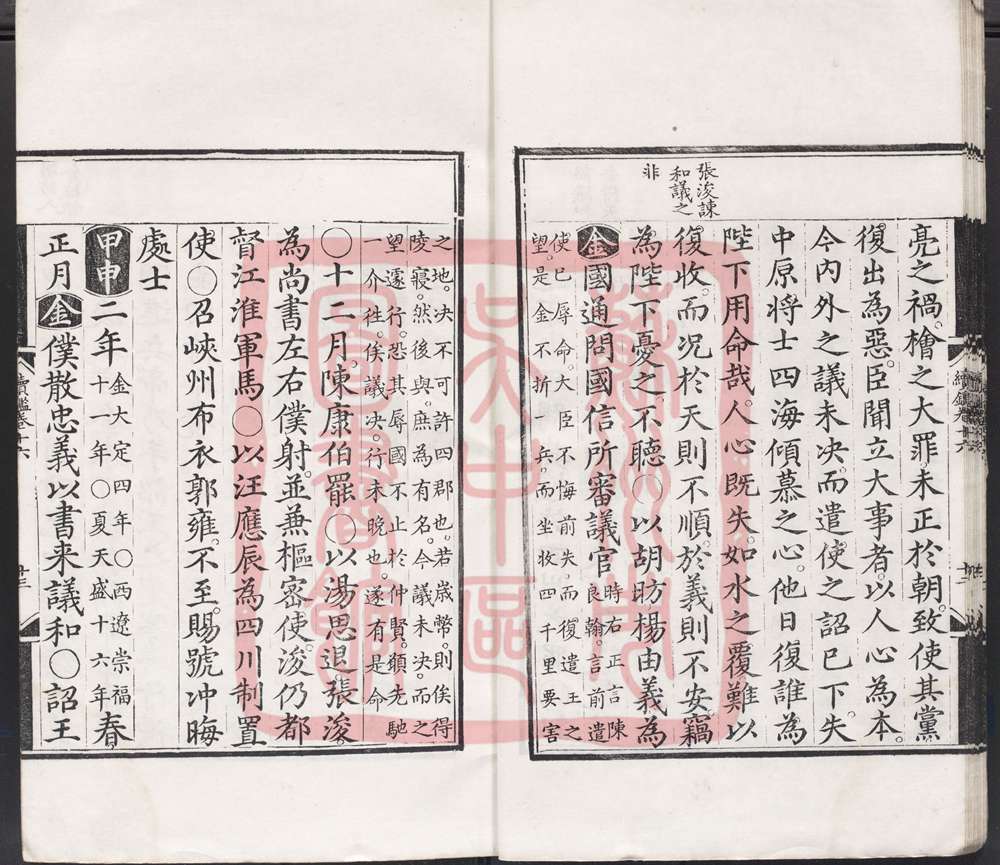 張浚諫
和議之
非
亮之禍檜之大罪未正於朝致使其黨
復出為惡臣聞立大事者以人心為本
今内外之議未决而遣使之詔已下失
中原将士四海傾慕之心他日復誰為
陛下用命哉人心既失如水之覆難以
復收而况於天則不順於義則不安竊
為陛下憂之不聽○以胡昉楊由義為
金國通問國信所審議官時右正言陳
良翰言前遣
使已辱命大臣不悔前失而復遣王之
望是金不折一兵而坐收四千里要害
之地决不可許四郡也若歲幣則俟得
陵寢然後與庶為有名今議未决而之
望遽行恐其辱國不止於仲賢願先馳
一介往俟議决行未晚也遂有是命
○十二月陳康伯罷○以湯思退張浚
為尚書左右僕射並兼樞密使浚仍都
督江淮軍馬○以汪應辰為四川制置
使○召峽州布衣郭雍不至賜號冲晦
處士
甲申二年金大定四年○西遼崇福
十一年○夏天盛十六年春
正月金僕散忠義以書来議和○詔王
續鑑卷十六
廿三
蘇州市
吳中區
圖書館